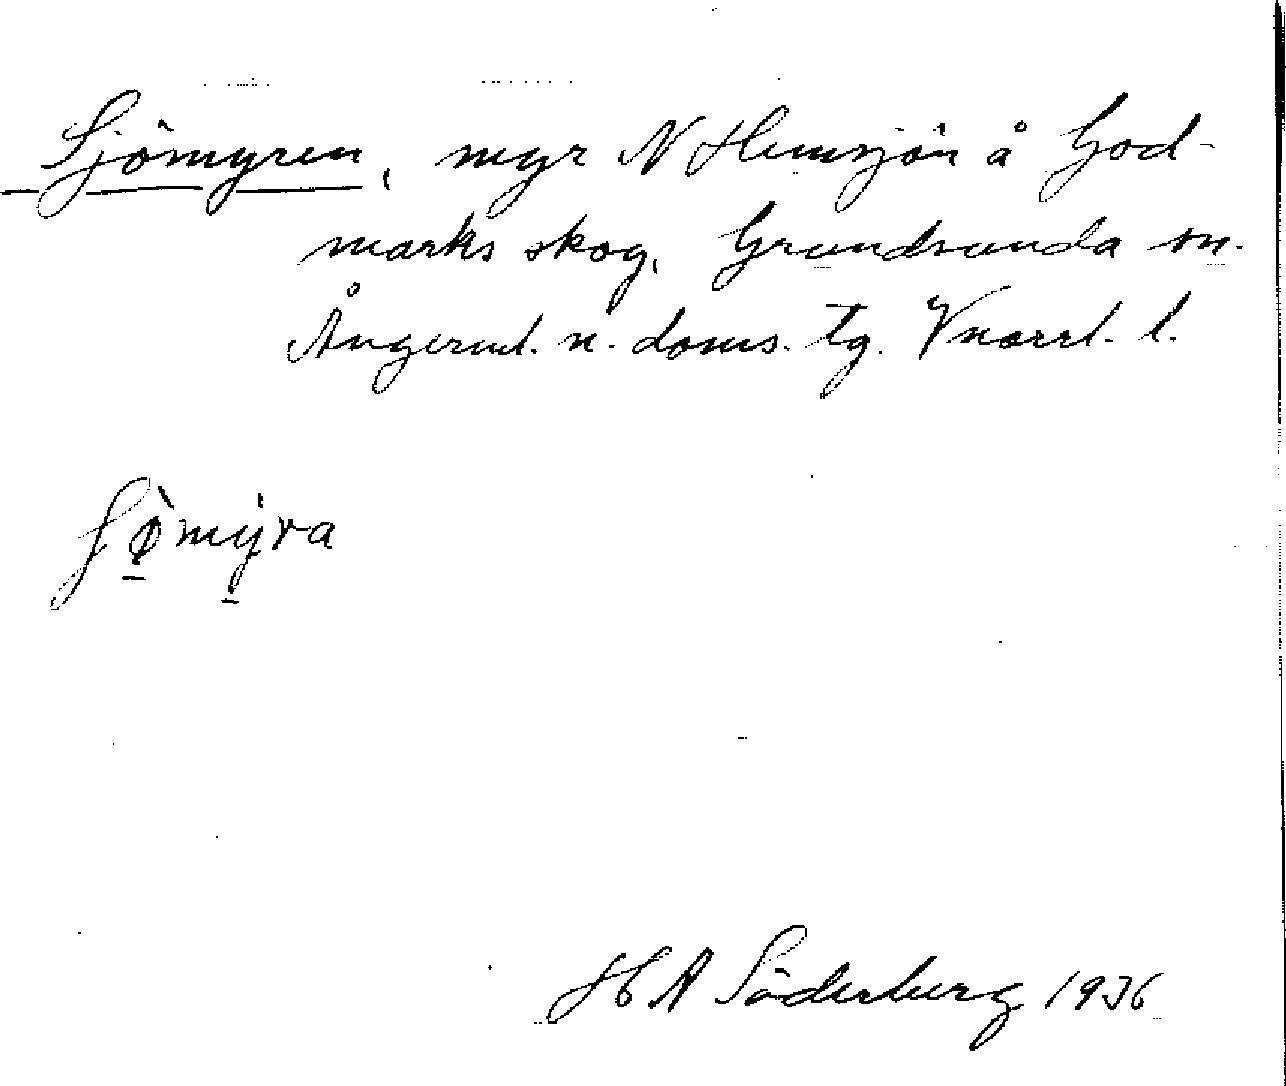 Sjömyren, myr N Hemsjön å God-
marks skog, Grundsunda sn.
Ångerml. n. doms. tg. Vnorrl. l.
ʃø̀mýra
H A Söderberg 1936